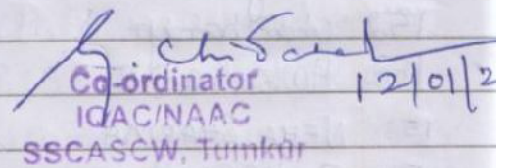 12/01/2
Co-ordinator
IQAC/NAAC
SSCASCW, Tumkur